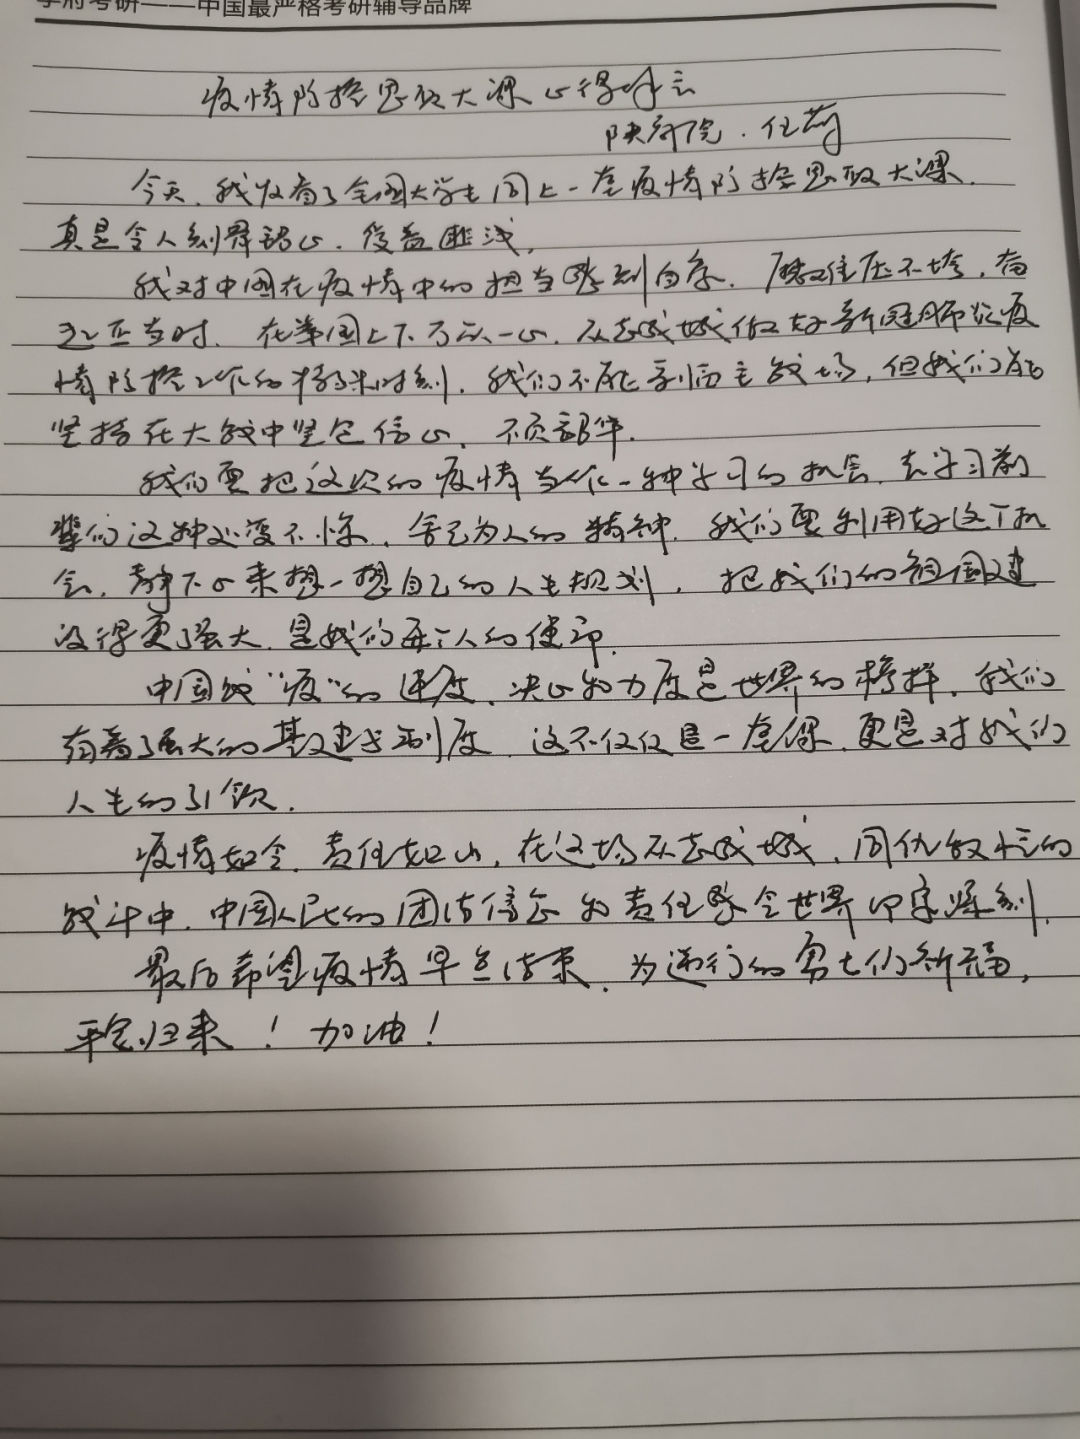 学府考研——中国最严格考研辅导品牌
疫情防控思政大课心得体会
今天,我收看了全国大学生同上一堂疫情防控思政大课,
真是令人刻骨铭心,受益匪浅,
我对中国在疫情中的担当感到自豪,压不垮,
在举国上下万众一心,众志成城做好新冠肺炎疫
情防控工作的特殊时刻,我们不能亲临主战场,但我们能
坚持在大战中坚定信心,不负韶华.
我们要把这次的疫情当作一种学习的机会,去学习前
辈们这种处变不惊,舍己为人的精神,我们要利用好这个机
会,静下心来想一想自己的人生规划,把我们的祖国建
设得更强大,是我们每个人的使命.
中国战“疫”的速度、决心和力度是世界的榜样,我们
有着强大的基建与制度,这不仅仅是一堂课,更是对我们
人生的引领.
疫情如令,责任如山,在这场众志成城,同仇敌忾的
战斗中,中国人民的团结信念和责任感令世界印象深刻.
最后希望疫情早点结束,为逆行的勇士们祈福,
平安归来!加油!